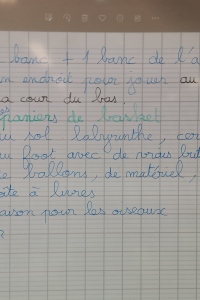 banc + 1 banc de l'a
n endroit pour jouer au
a cour du bas.
paniers de basket
au sol labyrinthe, cer
au foot avec de vrais but
e ballons, de matériel,
oîte à livres
aison pour les oiseaux
?